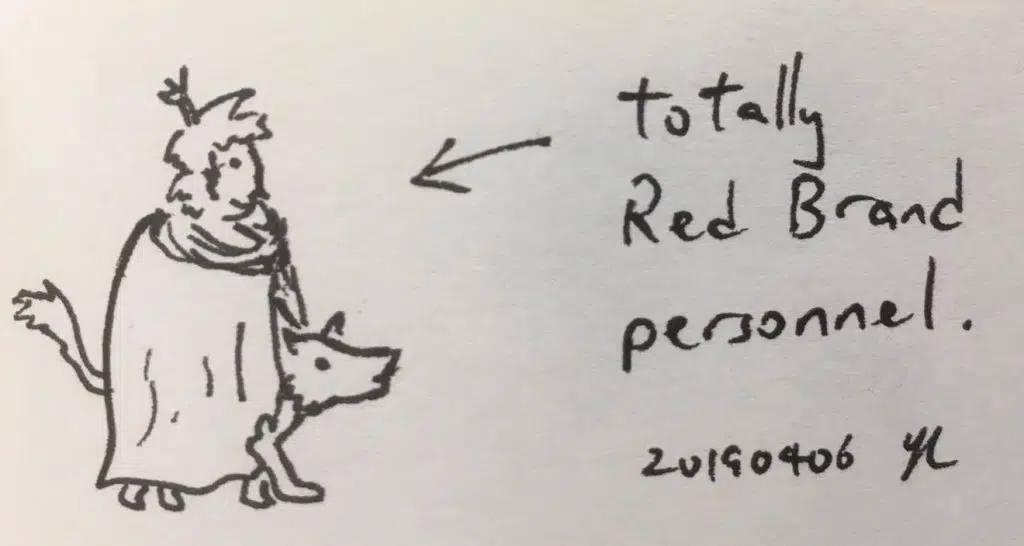 totally
Red Brand
personnel.
20190406 YL